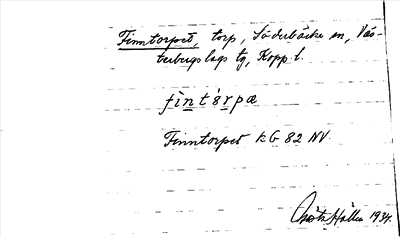 Finntorpet, torp, Söderbärke sn, Väs-
terbergslags tg, Kopp. l.
fìntórpæ
Finntorpet kG 82 NV.
Hallén 1934.